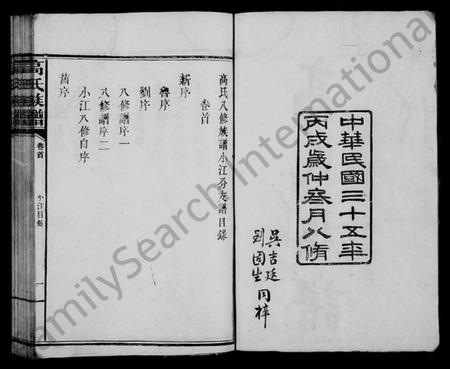 中華民國三十五年
丙戌歲仲叁月八修
吳吉廷
劉國生同梓
高氏八修族譜小江分支譜目錄
卷首
新序
魯序
劉序
八修譜序一
八修譜序二
小江八修自序
舊序
高氏族譜
卷首
小江目錄
一
FamilySearch International